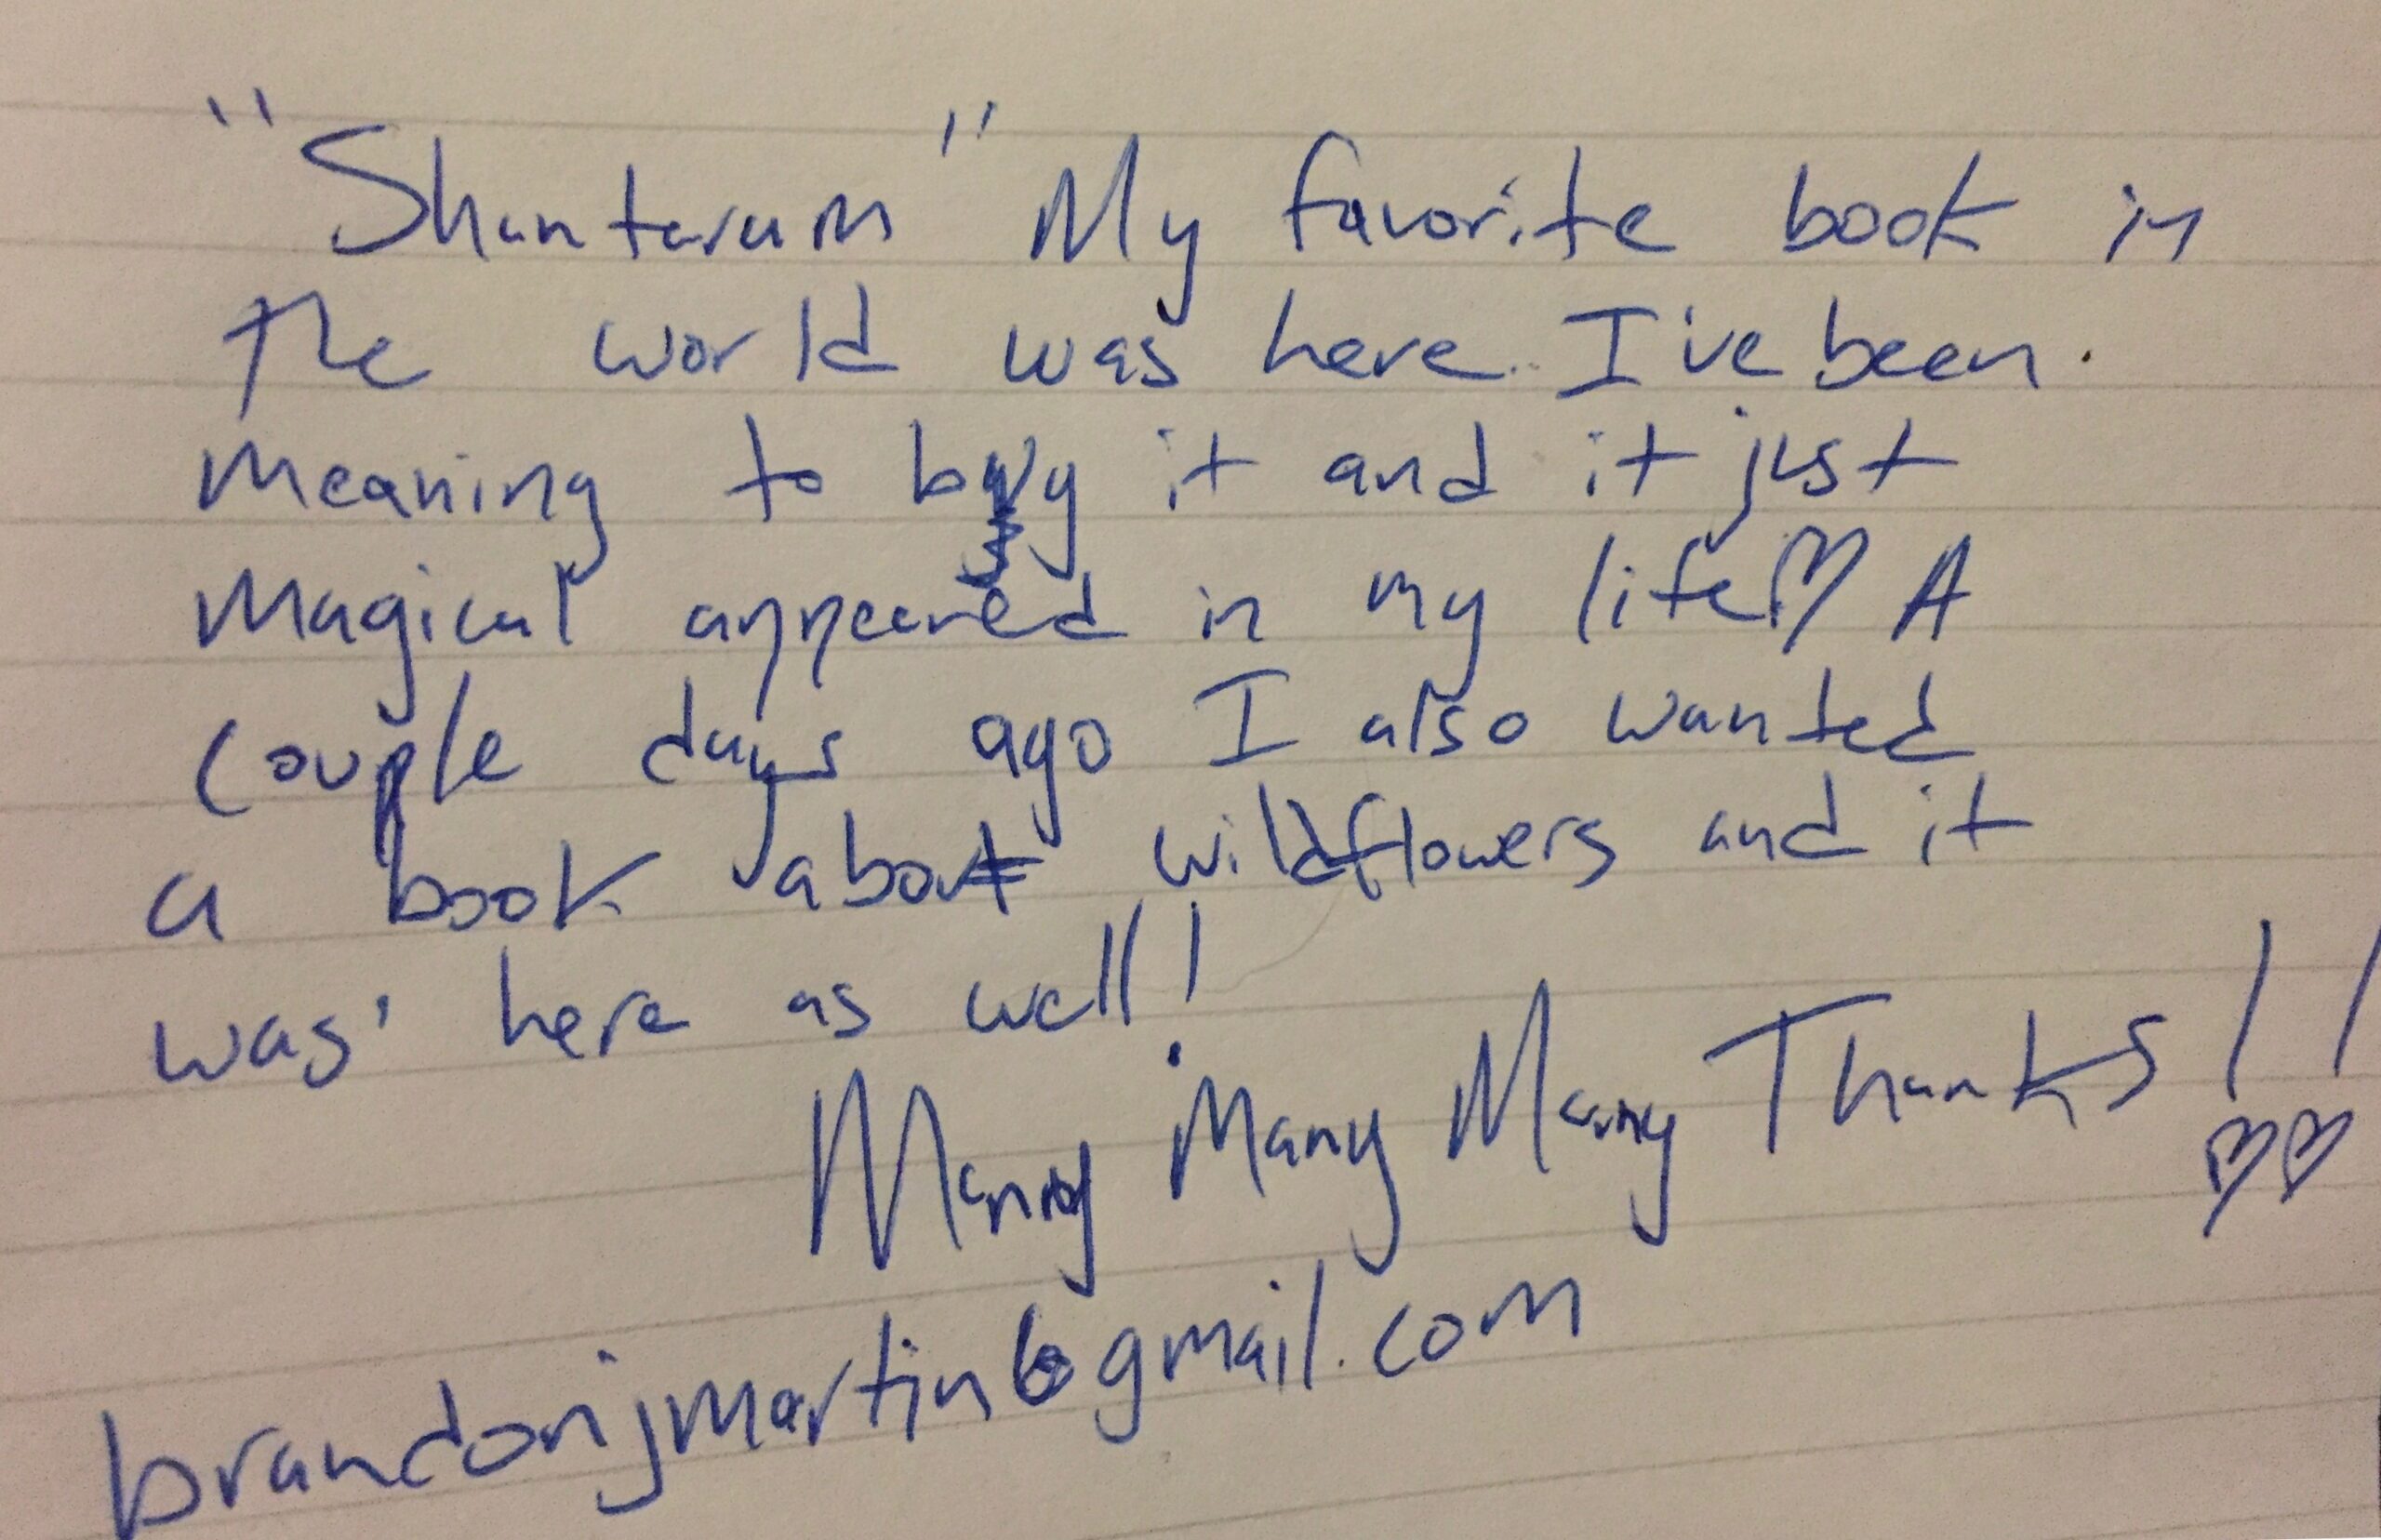 "Shantaram" My favorite book in
the world was here. I've been
meaning to buy it and it just
magical appeared in my life♡ A
couple days ago I also wanted
a book about wildflowers and it
was here as well!
Many Many Many Thanks!!
♡♡
brandonjmartin@gmail.com